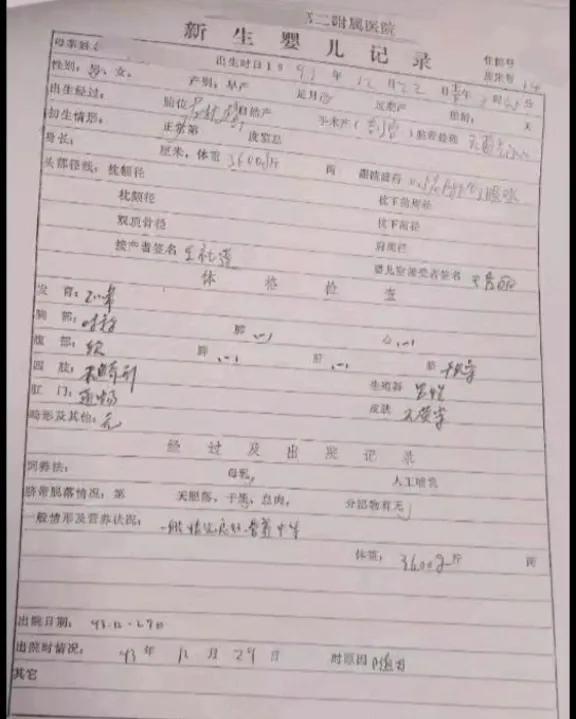 二附属医院
新生婴儿记录
住院号
母亲姓名 出生时日19 93 年 12 月 22 日 上午 下午 时 分 病床号
性别：男、女。 产别：早产 足月 过期产 胎龄： 天
出生经过： 胎位 自然产 手术产（剖宫）脐带结扎
初生情形： 正常第 度窒息
身长： 厘米，体重 3600 斤 两 眼睛滴药
头部径线：枕额径 枕下前周径
枕颏径 枕下周径
双顶骨径 枕下前径
接产者签名 肩周径
婴儿室接受者签名
体格检查
发育：正常
胸部：对称 肺（-） 心（-）
腹部：软 脾（-） 肝（-） 脐 干燥
四肢：未畸形 生殖器
肛门：通畅 皮肤
畸形及其他：无
经过及出院记录
饲养法： 母乳， 人工哺乳
脐带脱落情况：第 天脱落，干燥，息肉， 分泌物有无
一般情形及营养状况： 一般情况良好，营养中等
体重： 3600g 斤 两
出院日期： 93.12.29日
出院时情况： 93 年 12 月 29 日 时原因
其它